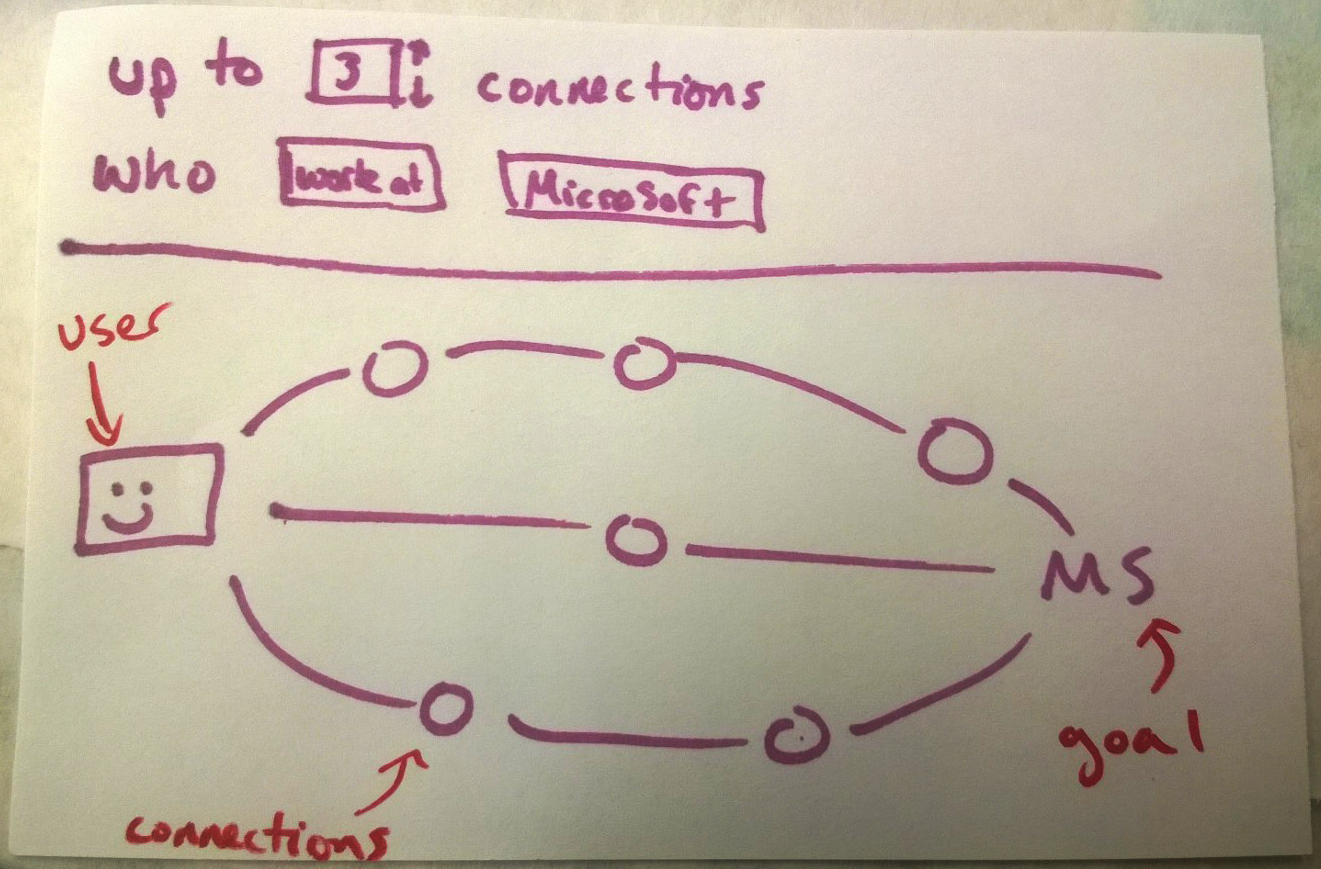 up to 3 connections
who work at Microsoft
user
MS
goal
connections